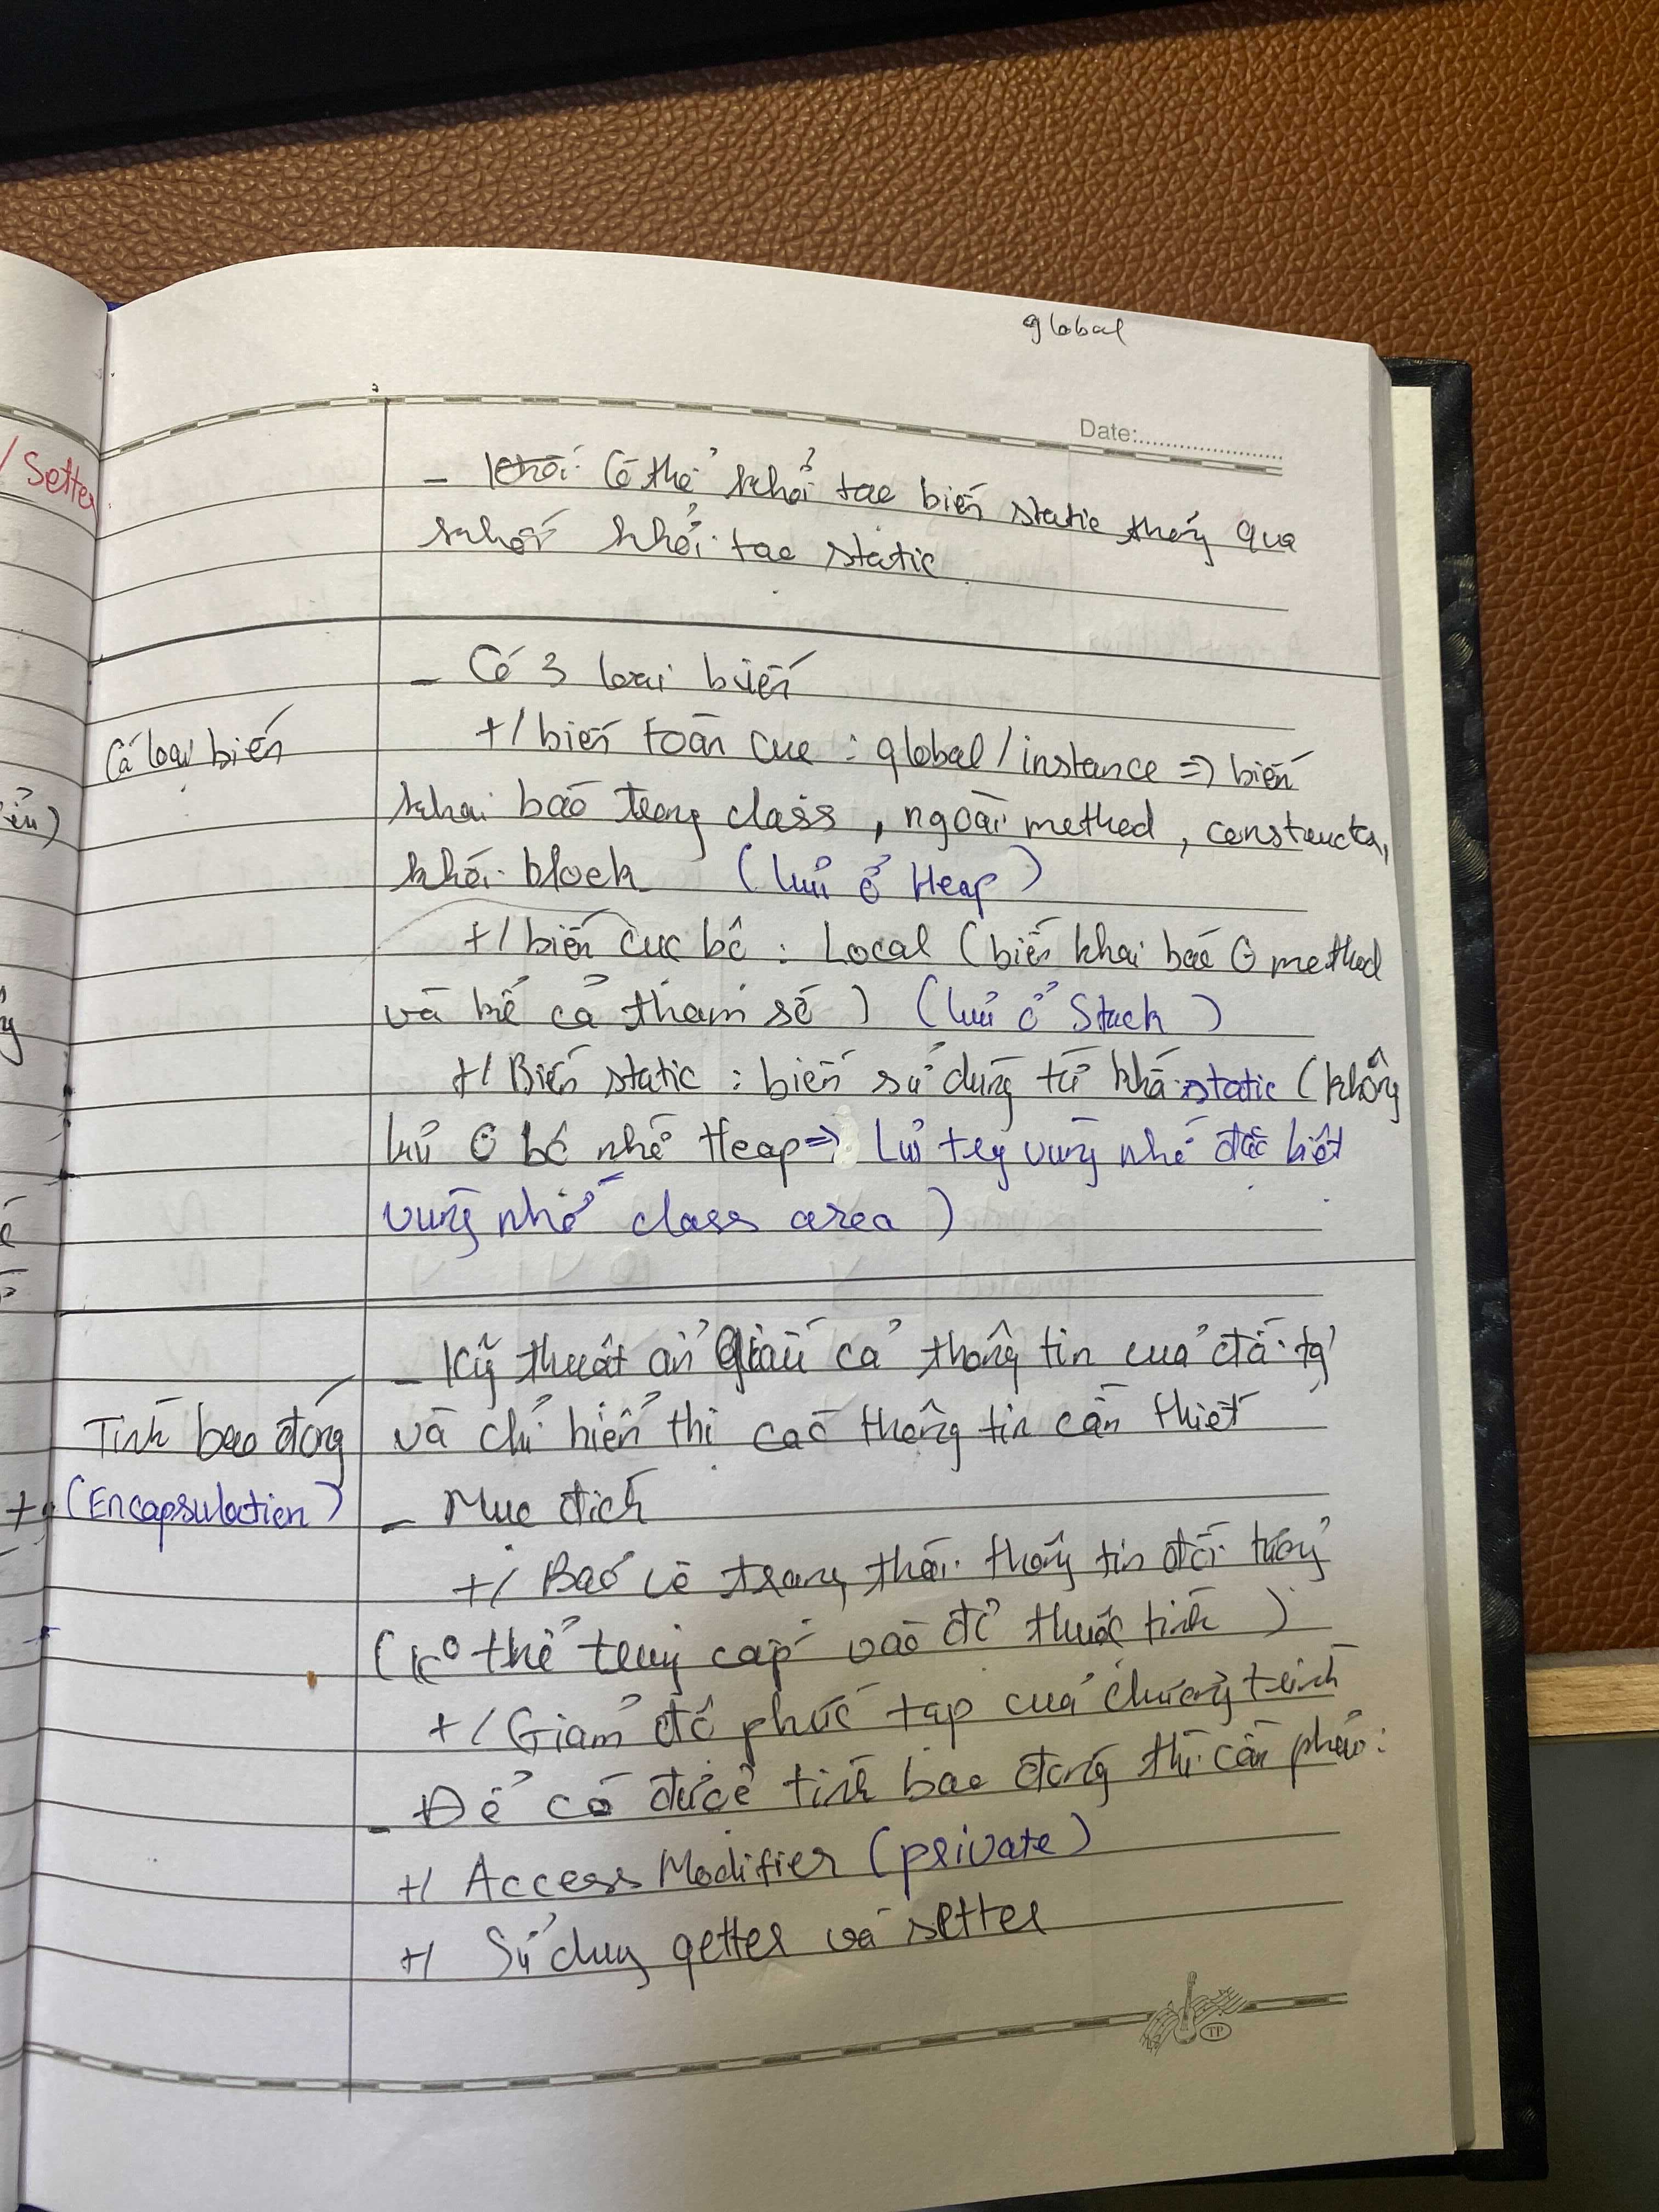 global
Date:
/ Setter
- Khối Có thể khởi tạo biến static thông qua
khối khởi tạo static
- Có 3 loại biến
Cá loại biến
+/ biến toàn cục : global / instance => biến
khai báo trong class , ngoài method , constructor,
khối block (lưu ở Heap)
+/ biến cục bộ : Local (biến khai báo ở method
và kể cả tham số ) (lưu ở Stack )
+/ Biến static : biến sử dụng từ khóa static (không
lưu ở bộ nhớ Heap => Lưu trg vùng nhớ đặc biệt
vùng nhớ class area )
- Kỹ thuật ẩn giấu cá thông tin của đối tg
Tính bao đóng
và chỉ hiển thị các thông tin cần thiết
(Encapsulation)
- Mục đích
+/ Bảo vệ trạng thái thông tin đối tượng
(K° thể truy cập vào đc thuộc tính )
+/ Giảm độ phức tạp của chương trình
- Để có được tính bao đóng thì cần phải :
+/ Access Modifier (private)
+/ Sử dụng getter và setter
TP